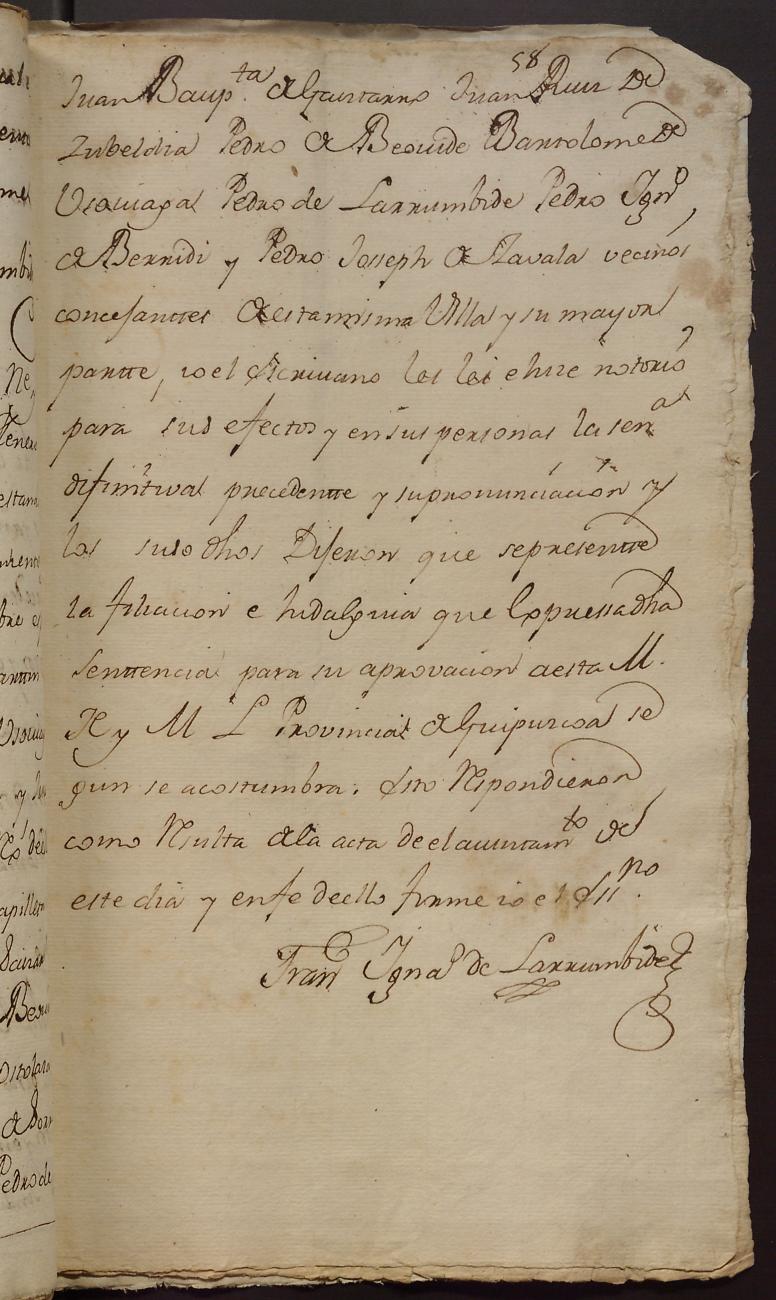 58
Juan Baup.ta de Gaintarro Juan Ruiz de
Zubeldia Pedro de Beouide Bartolome de
Usauiagas Pedro de Larrumbide Pedro Ign.o
de Berridi y Pedro Joseph de Zavala vecinos
concejanttes de esta misma Villa y su mayor
partte, io el Escriuano les lei e hice notorio
para sus efectos y en sus personas la senª
difinitiva precedentte y su pronunciacion y
los suso dhos Dijeron que se presentte
la filiacion e hidalguia que Expressa dha
Senttencia para su aprovacion a esta M.
N y M L Provincia de Guipuzcoa se
gun se acostumbra. Esto Respondieron
como Resulta de la acta de el aiuntam.to de
este dia y en fe de ello firme io el Ess.no
Fran.co Igna.o de Larrumbide
estam
Pedro de